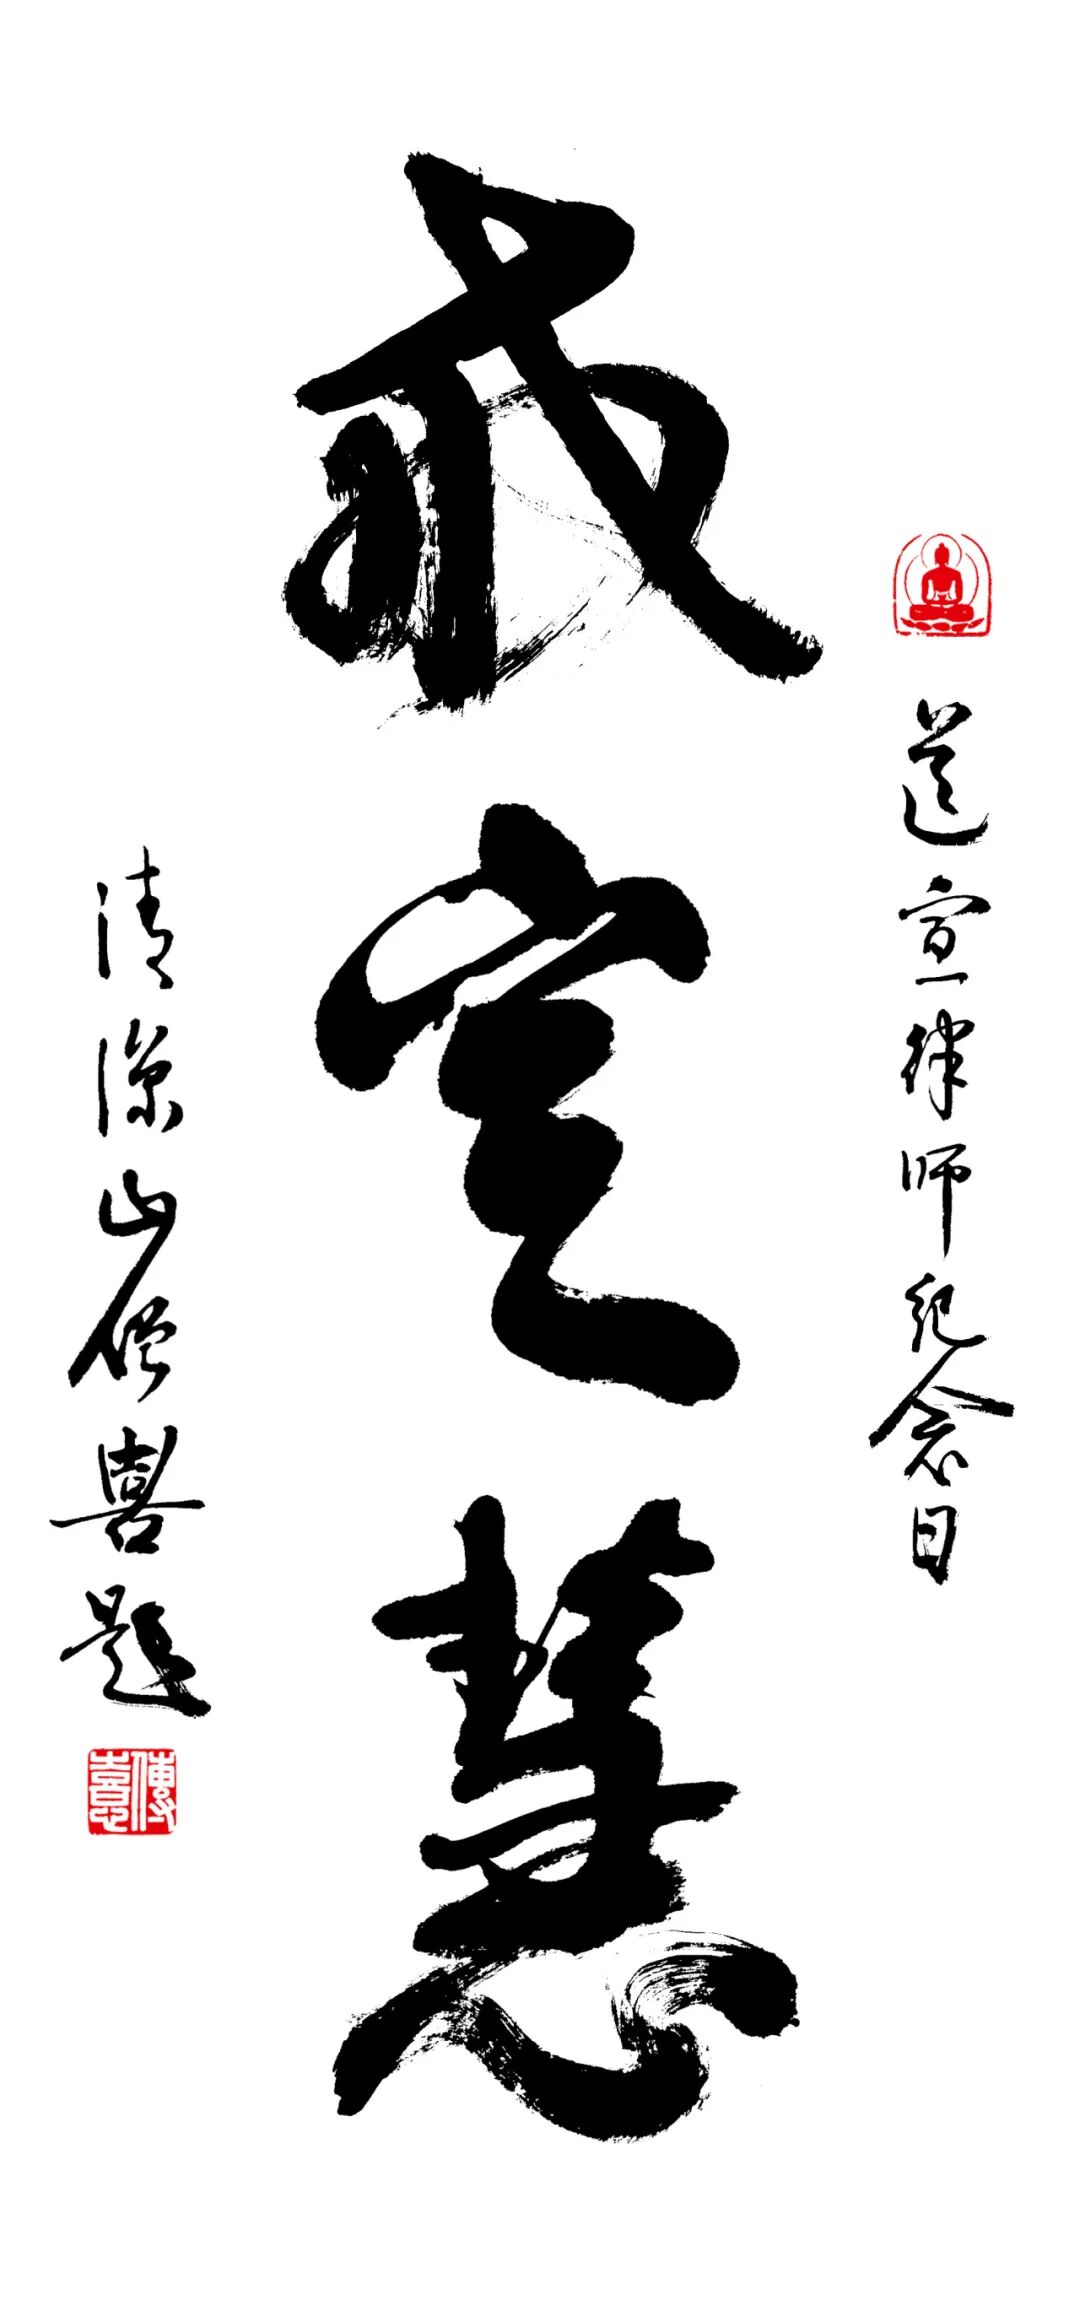 道宣律师纪念日
戒定慧
清凉山僧喜题
傳喜